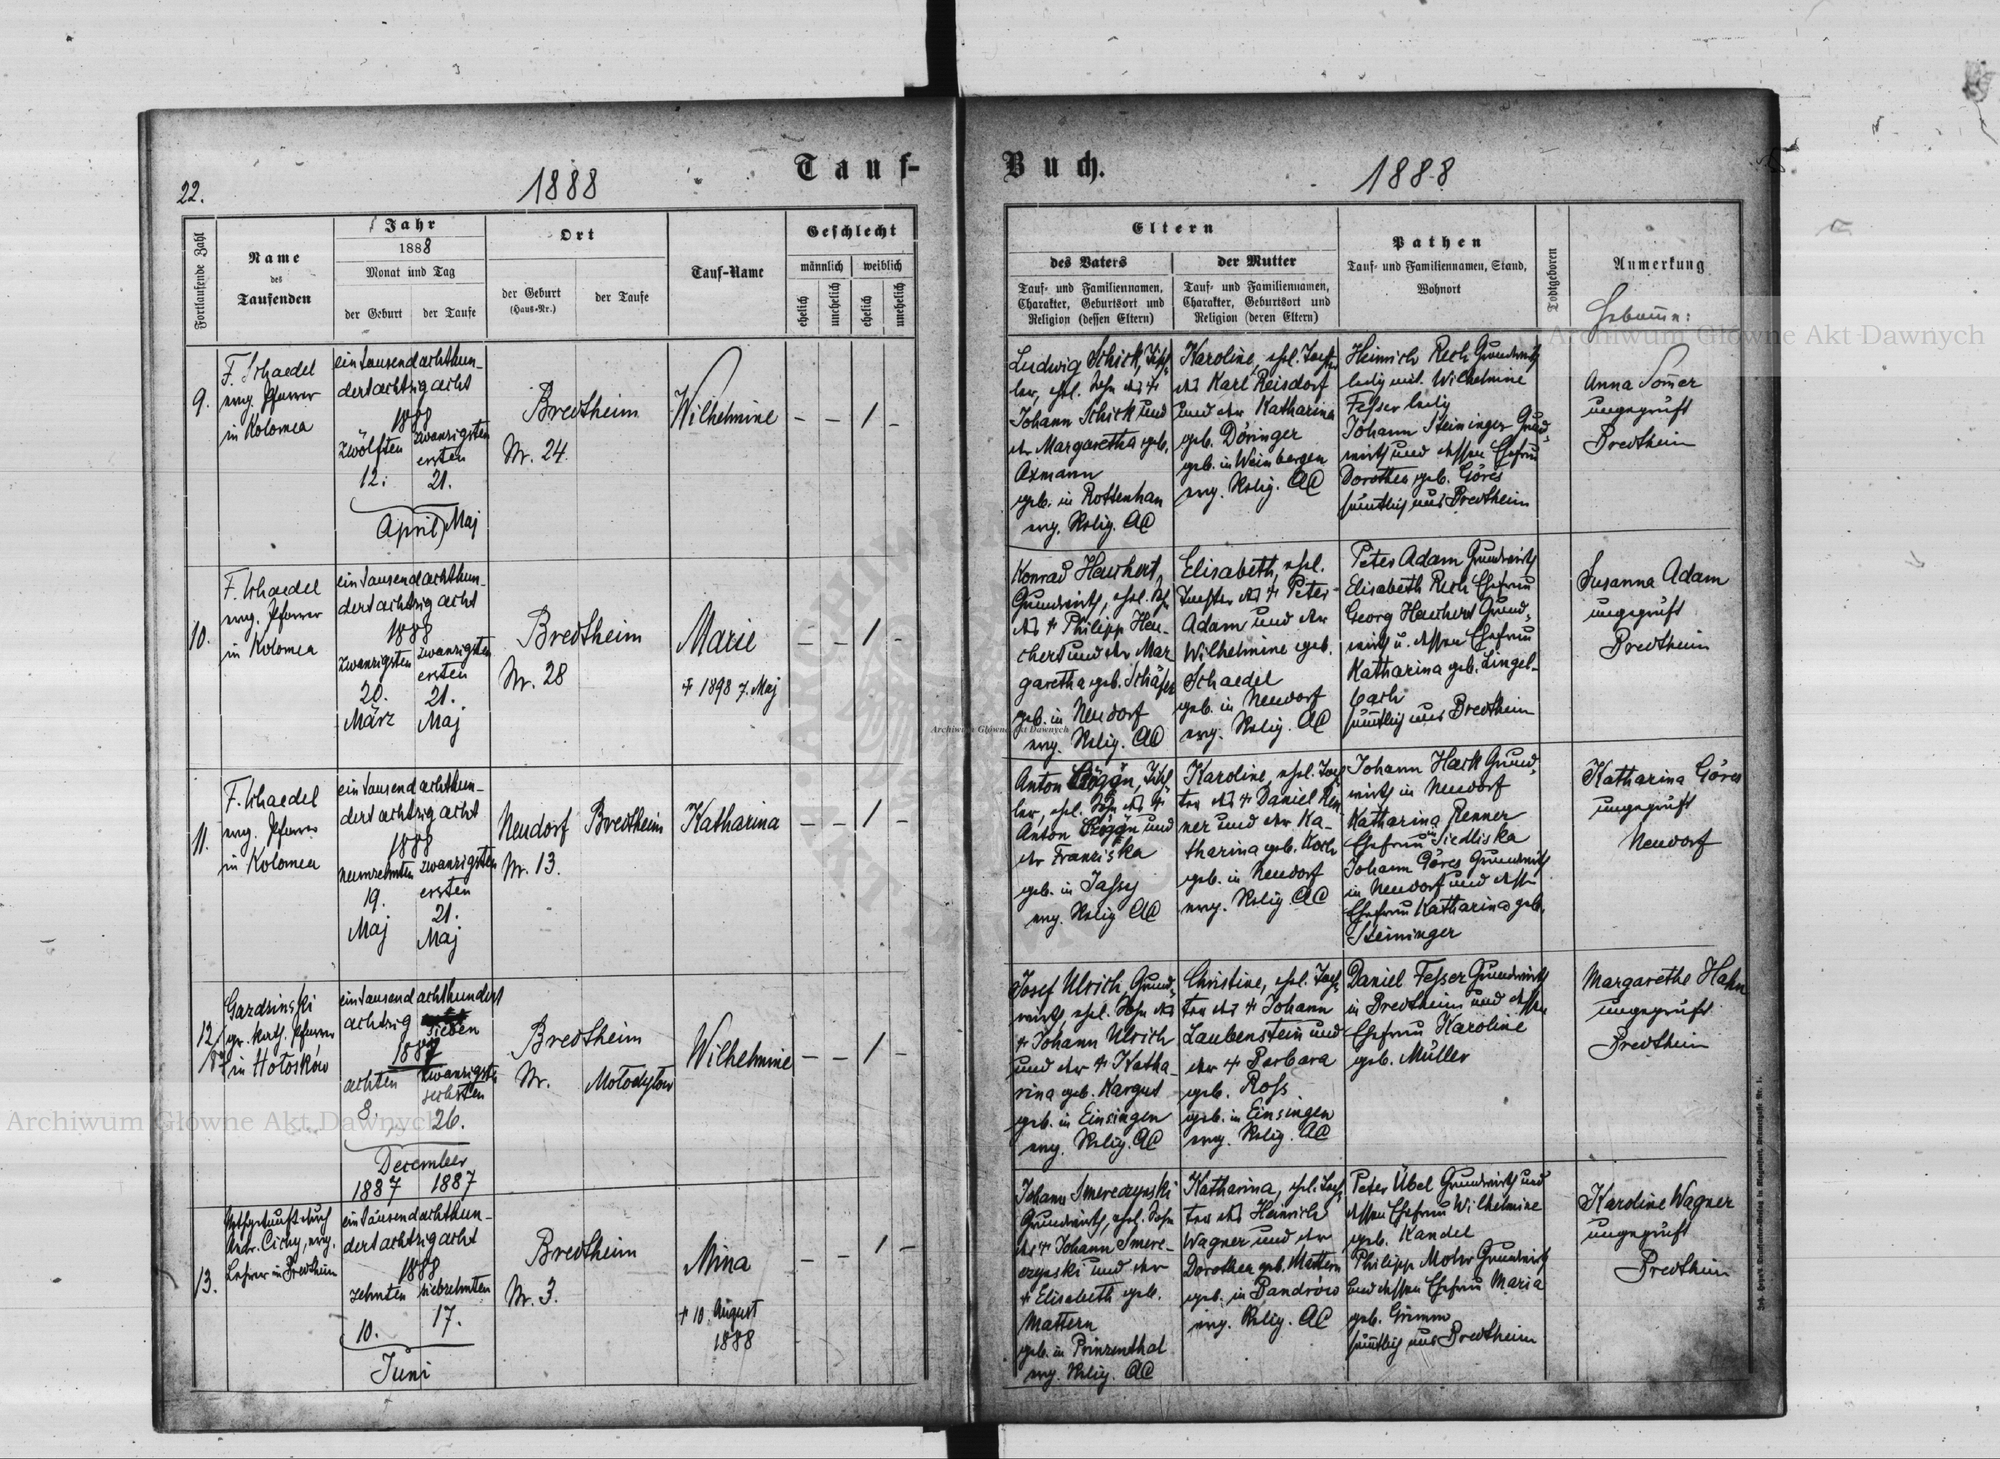 22.
1888
Tauf-
Buch.
1888
Fortlaufende Zahl
Name
des
Taufenden
Jahr
1888
Monat und Tag
der Geburt
der Taufe
Ort
der Geburt
(Haus-Nr.)
der Taufe
Tauf-Name
Geschlecht
männlich
weiblich
ehelich
unehelich
ehelich
unehelich
Eltern
des Vaters
Tauf- und Familiennamen,
Charakter, Geburtsort und
Religion (dessen Eltern)
der Mutter
Tauf- und Familiennamen,
Charakter, Geburtsort und
Religion (deren Eltern)
Pathen
Tauf- und Familiennamen, Stand,
Wohnort
Todtgeboren
Anmerkung
Hebamme:
9.
F. Schaedel
evg. Pfarrer
in Kolomea
eintausendachthun-
dertachtzig acht
1888
zwölften
12.
April
zwanzigsten
ersten
21.
Maj
Bredtheim
Nr. 24.
Wilhelmine
- - 1 -
Ludwig Schick, Tisch-
ler, ehel. Sohn des †
Johann Schick und
der Margaretha geb.
Axmann
geb. in Rottenhan
evg. Relig. AC
Karoline, ehel. Tochter
des Karl Reisdorf
und der Katharina
geb. Döringer
geb. in Weinbergen
evg. Relig. AC
Heinrich Rech Grundwirth
ledig mit Wilhelmine
Fesser ledig
Johann Steininger Grund-
wirth und dessen Ehefrau
Dorothea geb. Göres
sämtlich aus Bredtheim
Anna Somer
ungeprüft
Bredtheim
10.
F. Schaedel
evg. Pfarrer
in Kolomea
eintausendachthun-
dertachtzig acht
1888
zwanzigsten
20.
März
zwanzigsten
ersten
21.
Maj
Bredtheim
Nr. 28
Marie
† 1898 7. Maj
- - 1 -
Konrad Heuchert,
Grundwirth, ehel. Sohn
des † Philipp Heu-
chert und der Mar
garetha geb. Schäfer
geb. in Neudorf
evg. Relig. AC
Elisabeth, ehel.
Tochter des † Peter
Adam und der
Wilhelmine geb.
Schaedel
geb. in Neudorf
evg. Relig. AC
Peter Adam Grundwirth
Elisabeth Rech Ehefrau
Georg Heuchert Grund-
wirth u. dessen Ehefrau
Katharina geb. Lingel-
bach
sämtlich aus Bredtheim
Susanna Adam
ungeprüft
Bredtheim
11.
F. Schaedel
evg. Pfarrer
in Kolomea
eintausendachthun-
dertachtzig acht
1888
neunzehnten
19.
Maj
zwanzigsten
ersten
21.
Maj
Neudorf
Nr. 13.
Bredtheim
Katharina
- - 1 -
Anton
ler, ehel. Sohn des †
Anton
der Franciska
geb. in Jassy
evg. Relig AC
Karoline, ehel. Toch
ter des † Daniel Ren
ner und der Ka-
tharina geb. Koch
geb. in Neudorf
evg. Relig. AC
Johann Heck Grund-
wirth in Neudorf
Katharina Renner
Ehefrau in Siedliska
Johann Göres Grundwirth
in Neudorf und dessen
Ehefrau Katharina geb.
Steininger
Katharina Göres
ungeprüft
Neudorf
12/87
Gardzinski
gr. kath. Pfarrer
in Hołosków
eintausend achthundert
achtzig sieben
1887
achten
8.
zwanzigsten
sechsten
26.
December
1887 1887
Bredtheim
Nr.
Mołodyłow
Wilhelmine
- - 1 -
Josef Ulrich, Grund-
wirth, ehel. Sohn des
† Johann Ulrich
und der † Katha-
rina geb. Kargut
geb. in Einsingen
evg. Relig. AC
Christine, ehel. Toch-
ter des † Johann
Laubenstein und
der † Barbara
geb. Ross
geb. in Einsingen
evg. Relig. AC
Daniel Fesser Grundwirth
in Bredtheim und dessen
Ehefrau Karoline
geb. Müller
Margarethe Hahn
ungeprüft
Bredtheim
13.
Nothgetauft durch
Andr. Cichy, evg.
Lehrer in Bredtheim
eintausendachthun-
dertachtzig acht
1888
zehnten
10.
siebzehnten
17.
Juni
Bredtheim
Nr. 3.
Mina
† 10 August
1888
- - 1 -
Johann Smereczynski
Grundwirth, ehel. Sohn
des † Johann Smere-
czynski und der
† Elisabeth geb.
Mattern
geb. in Prinzenthal
evg. Relig. AC
Katharina, ehel. Toch-
ter des Heinrich
Wagner und der
Dorothea geb. Mattern
geb. in Bandrów
evg. Relig. AC
Peter Übel Grundwirth und
dessen Ehefrau Wilhelmine
geb. Kandel
Philipp Mohr Grundwirth
und dessen Ehefrau Maria
geb. Grimm
sämtlich aus Bredtheim
Karoline Wagner
ungeprüft
Bredtheim
Archiwum Główne Akt Dawnych
Archiwum Główne Akt Dawnych
Archiwum Główne Akt Dawnych